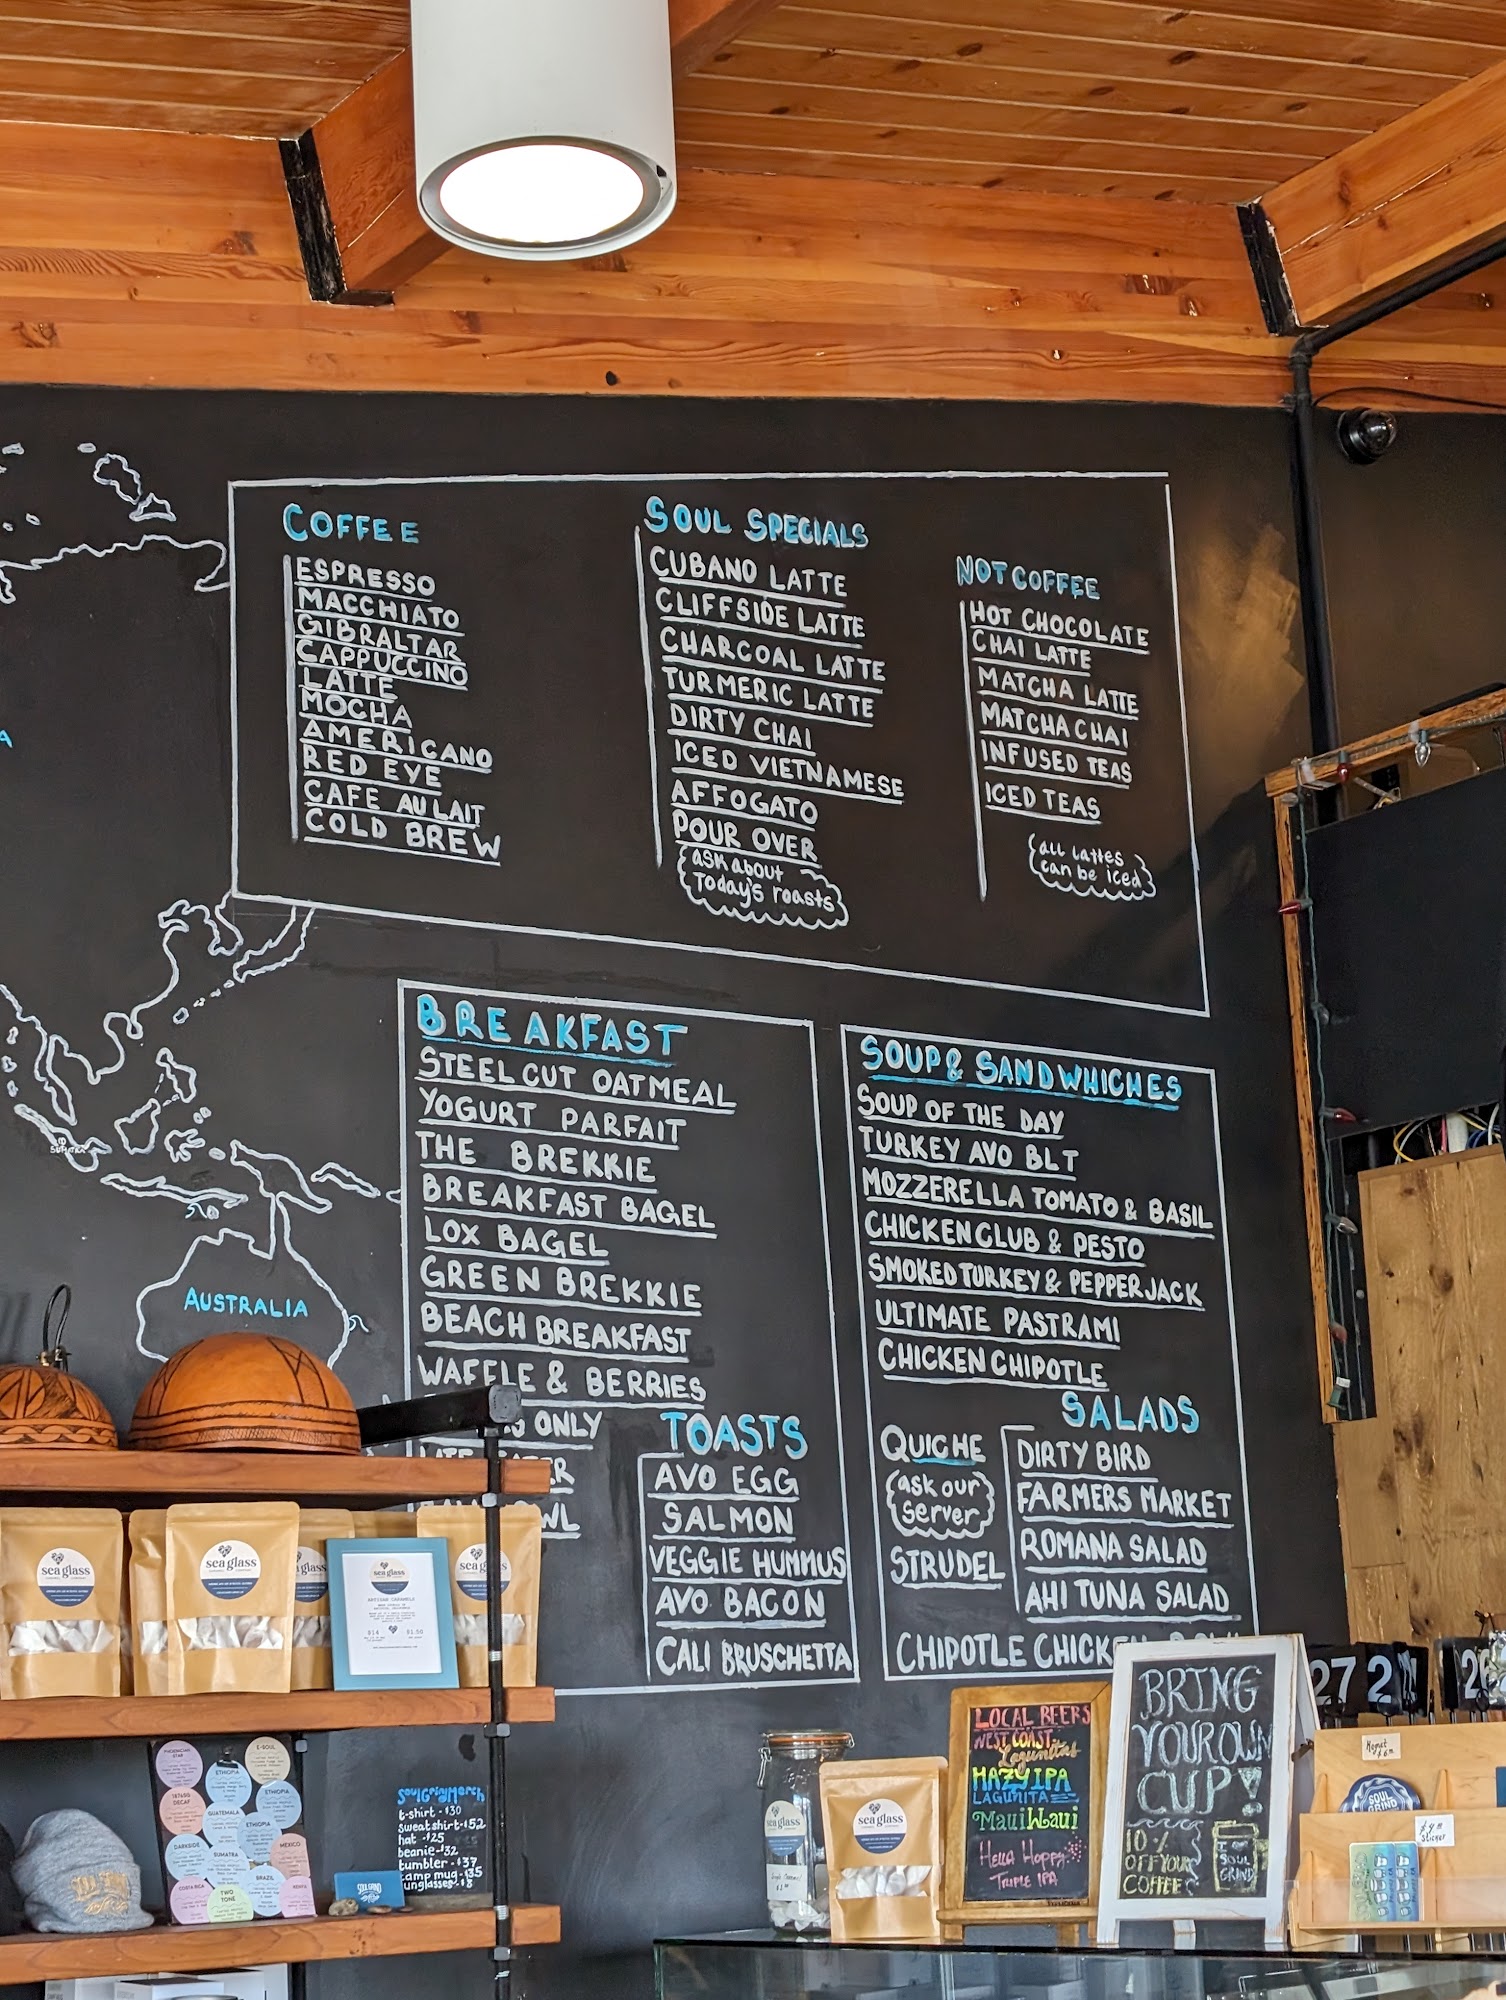 COFFEE
ESPRESSO
MACCHIATO
GIBRALTAR
CAPPUCCINO
LATTE
MOCHA
AMERICANO
RED EYE
CAFE AU LAIT
COLD BREW
SOUL SPECIALS
CUBANO LATTE
CLIFFSIDE LATTE
CHARCOAL LATTE
TURMERIC LATTE
DIRTY CHAI
ICED VIETNAMESE
AFFOGATO
POUR OVER
ask about
Today's roasts
NOT COFFEE
HOT CHOCOLATE
CHAI LATTE
MATCHA LATTE
MATCHA CHAI
INFUSED TEAS
ICED TEAS
all lattes
can be iced
BREAKFAST
STEEL CUT OATMEAL
YOGURT PARFAIT
THE BREKKIE
BREAKFAST BAGEL
LOX BAGEL
GREEN BREKKIE
BEACH BREAKFAST
WAFFLE & BERRIES
ONLY
TOASTS
AVO EGG
SALMON
VEGGIE HUMMUS
AVO BACON
CALI BRUSCHETTA
SOUP & SANDWHICHES
SOUP OF THE DAY
TURKEY AVO BLT
MOZZERELLA TOMATO & BASIL
CHICKEN CLUB & PESTO
SMOKED TURKEY & PEPPER JACK
ULTIMATE PASTRAMI
CHICKEN CHIPOTLE
QUICHE
(ask our
server)
STRUDEL
SALADS
DIRTY BIRD
FARMERS MARKET
ROMANA SALAD
AHI TUNA SALAD
CHIPOTLE CHICKEN
SUMATRA
AUSTRALIA
sea glass
sea glass
glass
sea glass
sea glass
ARTISAN CARAMELS
$14
$1.50
E-SOUL
ETHIOPIA
ETHIOPIA
DECAF
GUATEMALA
ETHIOPIA
DARKSIDE
SUMATRA
MEXICO
COSTA RICA
TWO TONE
BRAZIL
KENYA
Soul Grind Merch
t-shirt - $30
sweatshirt - $52
hat - $25
beanie - $32
tumbler - $37
camp mug - $35
sunglasses - $8
SOUL GRIND
sea glass
sea glass
LOCAL BEERS
WEST COAST
Lagunitas
HAZY IPA
LAGUNITAS
Maui Waui
Hella Hoppy
TRIPLE IPA
BRING
YOUR OWN
CUP!
10%
OFF YOUR
COFFEE
SOUL
GRIND
27 2
26
Magnet
SOUL
GRIND
Sticker